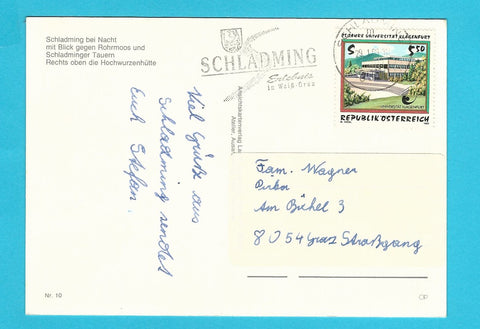 Schladming bei Nacht
mit Blick gegen Rohrmoos und
Schladminger Tauern
Rechts oben die Hochwurzenhütte
SCHLADMING
Erlebnis
in Weiß-Grün
25 JAHRE UNIVERSITÄT KLAGENFURT
S 5,50
UNIVERSITÄT KLAGENFURT
REPUBLIK ÖSTERREICH
Viel Grüße aus
Schladming sendet
Euch Stefan.
Fam. Wagner
Am Bühel 3
8054 Graz Straßgang
Nr. 10